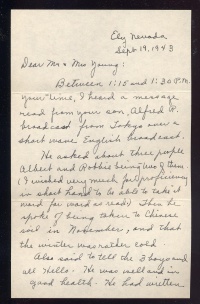 Ely, Nevada
Sept 19, 1943
Dear Mr & Mrs Young:
Between 1:15 and 1:30 P.M.
your time, I heard a message
read from your son, Alfred R.
broadcast from Tokyo over a
short wave English broadcast.
He asked about three people
Albert and Robbie being two of them
(I wished very much for proficiency
in short hand to be able to take it
word for word as read) Then he
spoke of being taken to Chinese
soil in November, and that
the winter was rather cold.
Also said to tell the 3 boys and
all Hello. He was well and in
good health. He had written